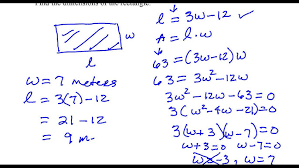 Find the dimensions of the rectangle.
w
l
w = 7 metres
l = 3(7) - 12
= 21 - 12
= 9 m.
l = 3w - 12 ✓
A = l · w
63 = (3w - 12)w
63 = 3w² - 12w
3w² - 12w - 63 = 0
3(w² - 4w - 21) = 0
3(w + 3)(w - 7) = 0
w + 3 = 0 w - 7 = 0
w = -3, w = 7